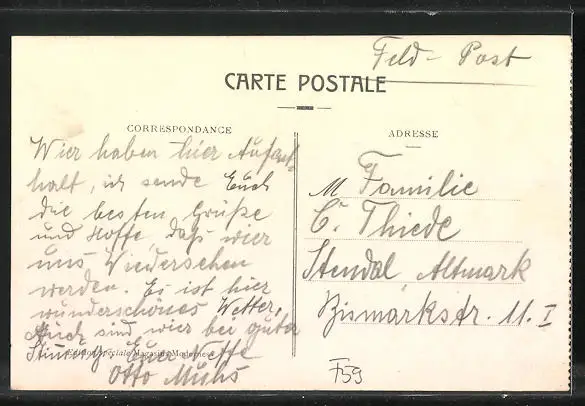 Feld-Post
CARTE POSTALE
CORRESPONDANCE
ADRESSE
Wier haben hier Aufent-
halt, ich sende Euch
die besten Grüße
und Hoffe, daß wier
uns Wiedersehen
werden. Es ist hier
wunderschönes Wetter,
Auch sind wier bei guter
Stimung. Eure Neffe
Otto Muhs
Edition Spéciale Magasins Modernes
M Familie
C. Thiede
Stendal Altmark
Bismarkstr. 11. I
F59